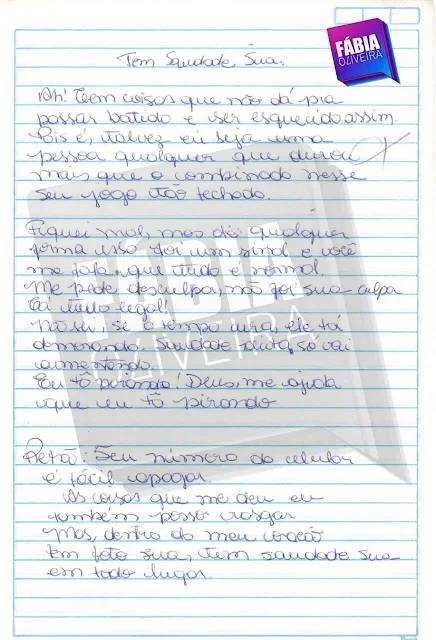 FÁBIA
OLIVEIRA
Tem Saudade Sua.
Ah! Tem coisas que não dá pra
passar batido e ser esquecido assim.
Pois é, talvez eu seja uma
pessoa qualquer que durou
mais que o combinado nesse
seu jogo tão fechado.
Fiquei mal, mas de qualquer
forma isso foi um sinal e você
me fala que tudo é normal.
Me pede desculpa, não foi sua culpa
Tá tudo legal!
Não sei, se o tempo cura, ele tá
demorando. Saudade dura, só vai
aumentando.
Eu tô pirando! Deus, me ajuda
que eu tô pirando
FÁBIA
OLIVEIRA
Refrão: Seu número do celular
é fácil apagar.
As coisas que me deu eu
também posso rasgar
Mas, dentro do meu coração
tem foto sua, tem saudade sua
em todo lugar.